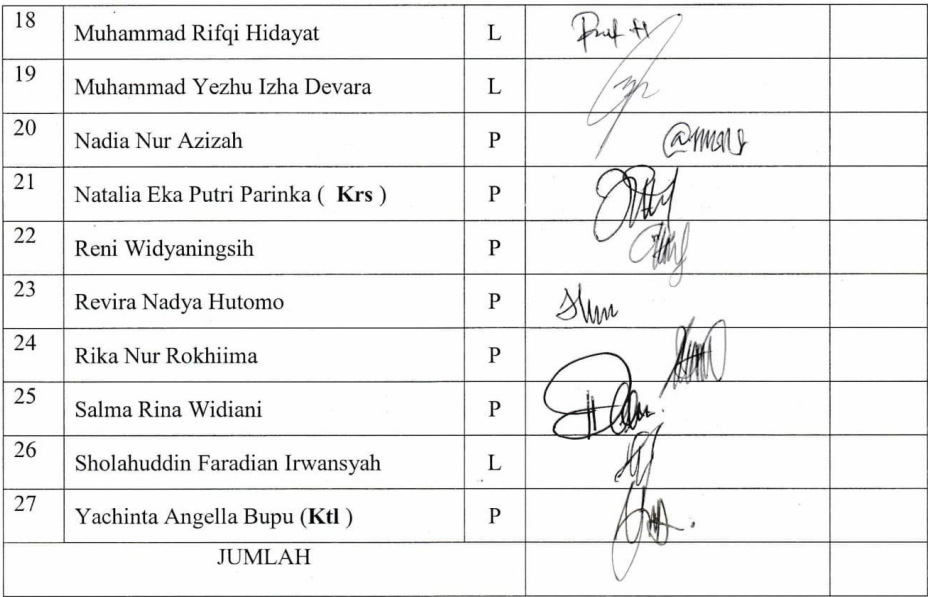 18 Muhammad Rifqi Hidayat L
19 Muhammad Yezhu Izha Devara L
20 Nadia Nur Azizah P
21 Natalia Eka Putri Parinka ( Krs ) P
22 Reni Widyaningsih P
23 Revira Nadya Hutomo P
24 Rika Nur Rokhiima P
25 Salma Rina Widiani P
26 Sholahuddin Faradian Irwansyah L
27 Yachinta Angella Bupu (Ktl ) P
JUMLAH